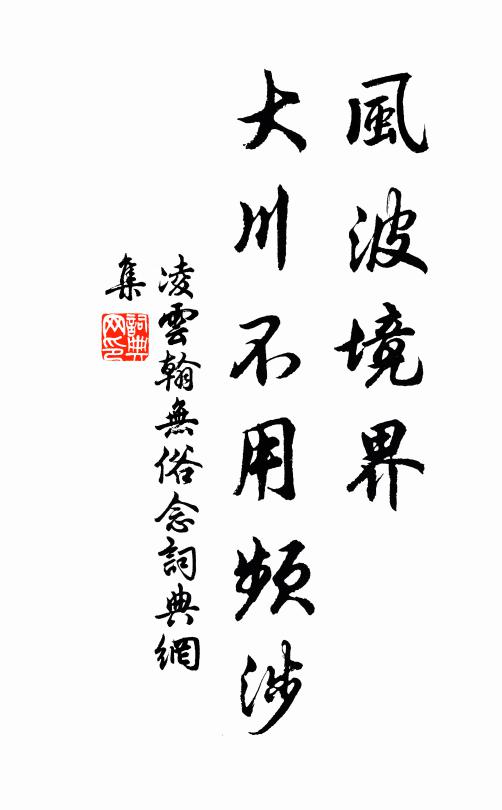 風波境界
大川不用頻涉
凌雲翰無俗念詞典網
集
詞典網印